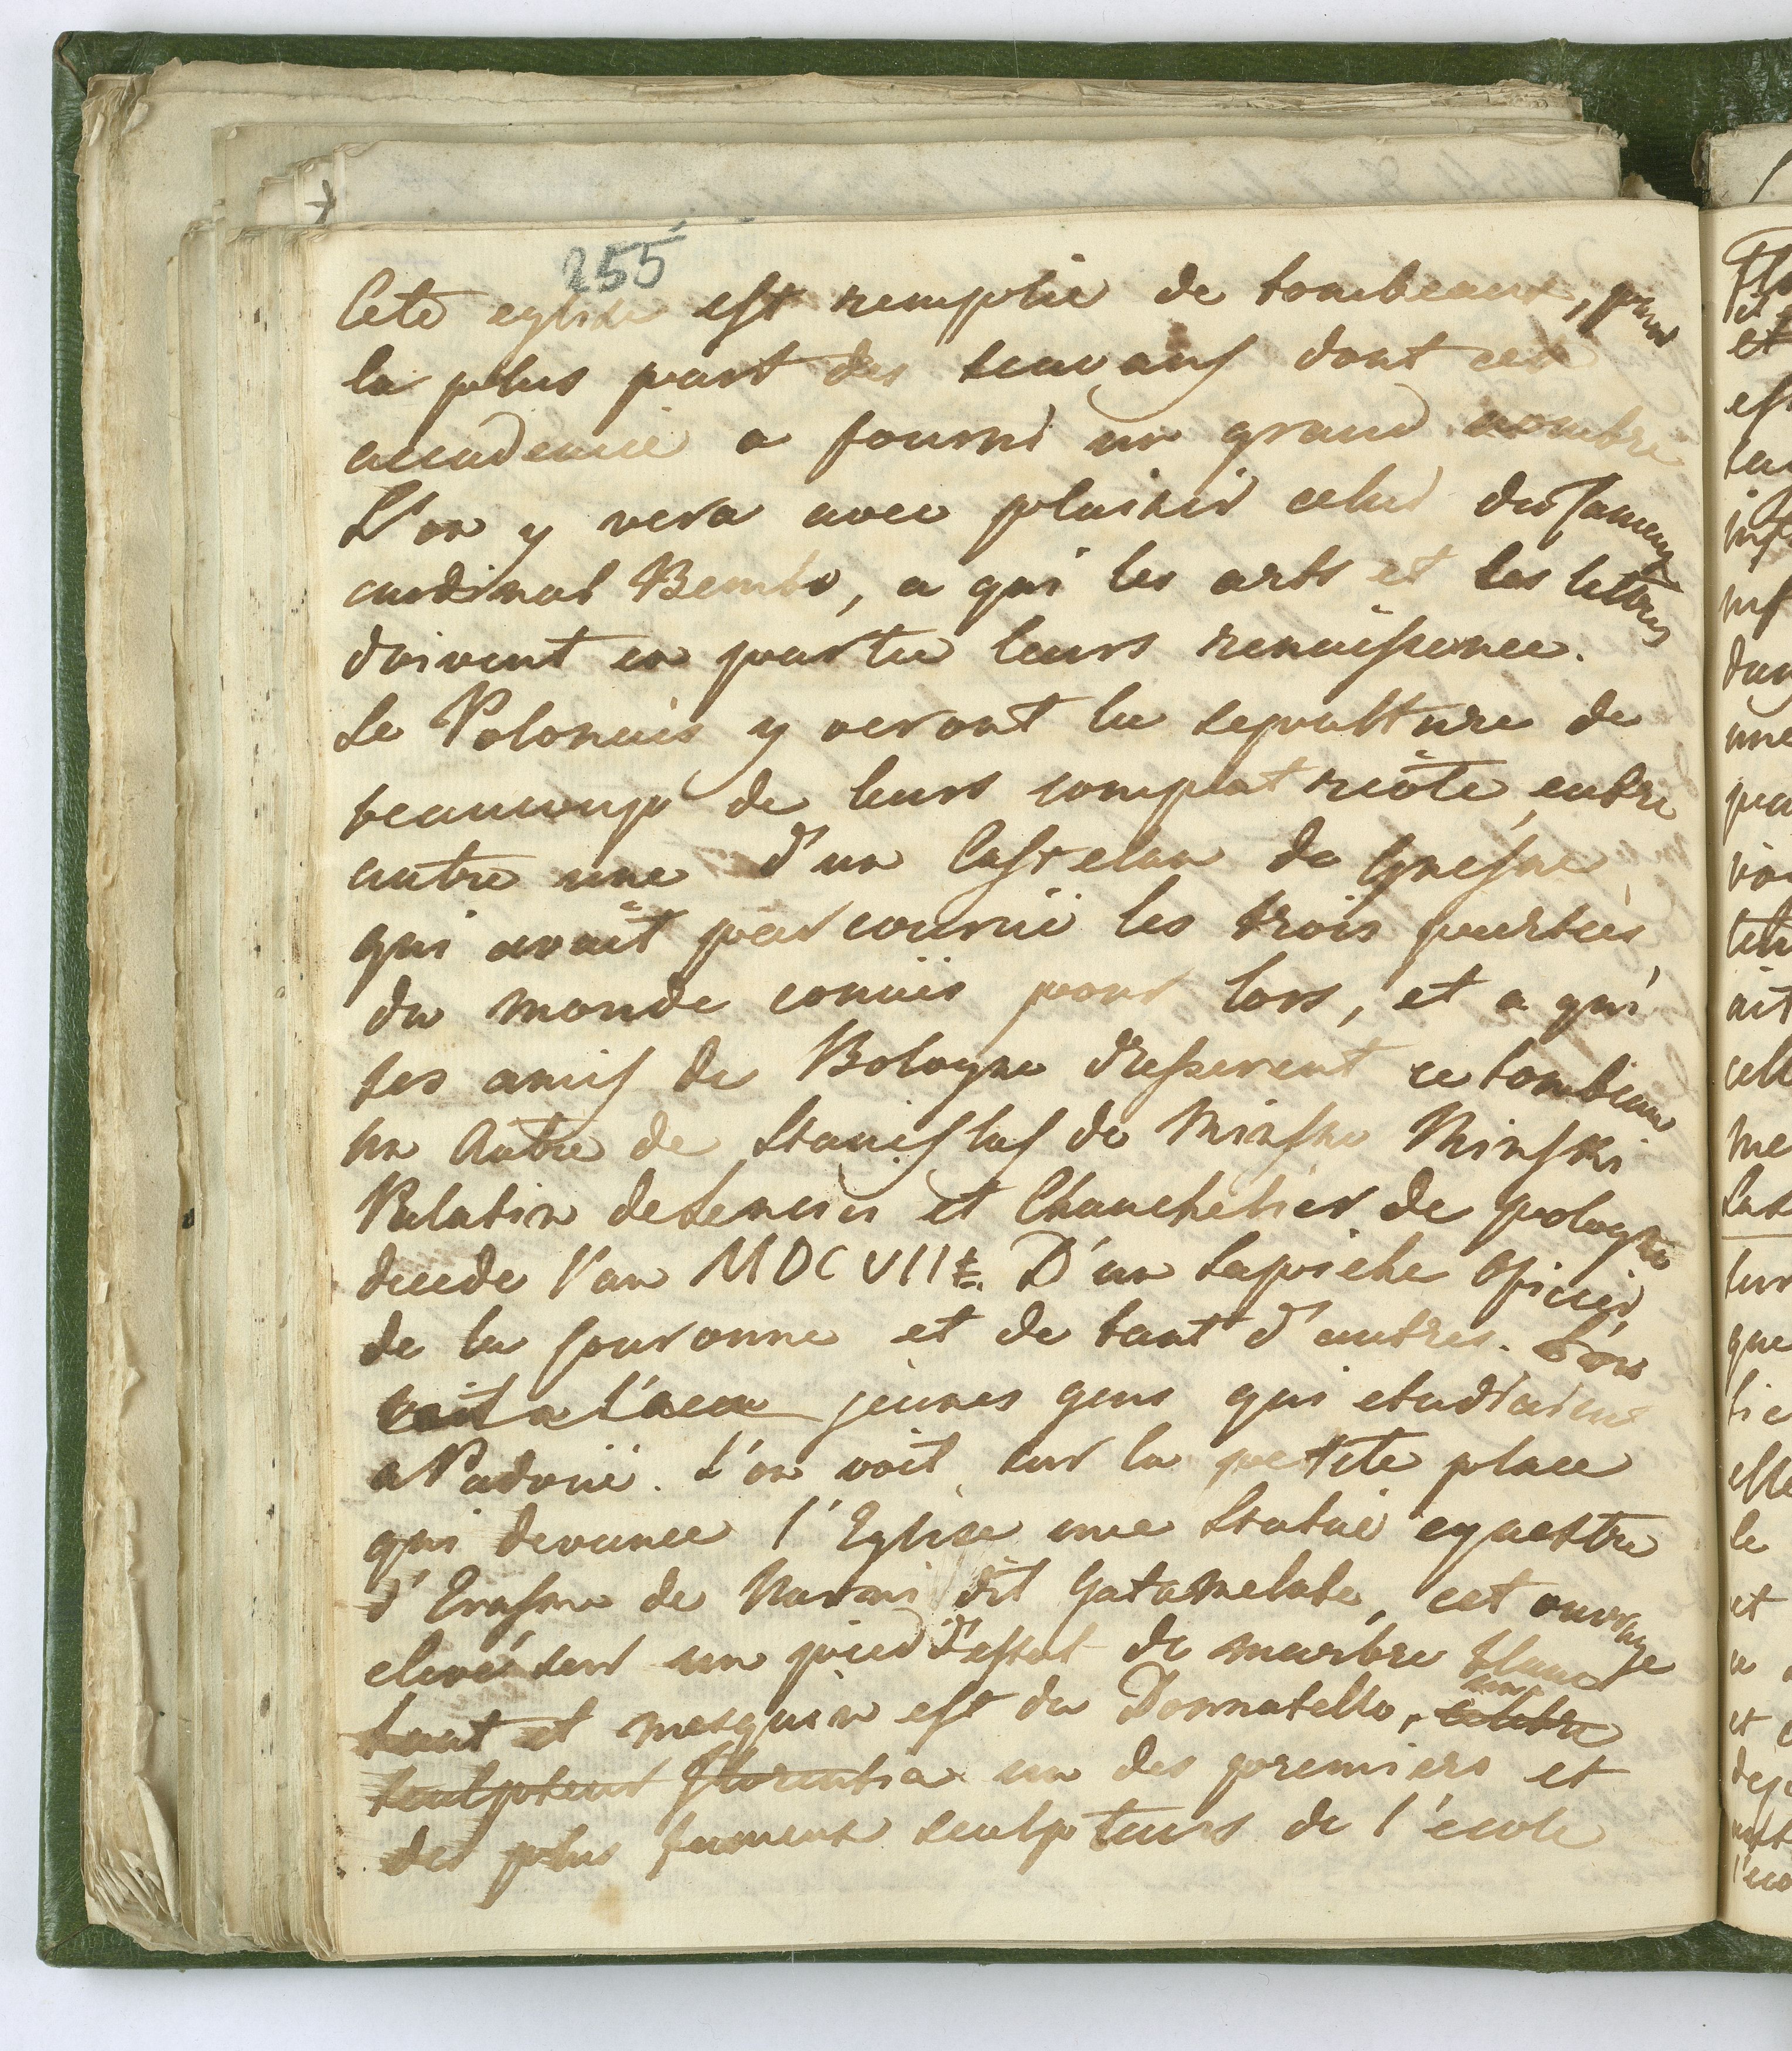 255
Cete eglise est remplie de tombeaux, pour
la plus part des scavans dont cet
accademie a fourni un grand nombre
L'on y vera avec plaisir celui du fameux
cardinal Bembo, a qui les arts et les lettres
doivent en partie leurs renaissence.
Le Polonais y veront la sepulture de
beaucoup de leurs compatriote, entre
autre une d'un Castelan de Gnesne,
qui avait parcourüe les trois parties
du monde connüis pour lors, et a qui
ses amis de Bologne dresserent ce tombeau
un Autre de Stanislas de Minsko Minski
Palatin de Lencici et Chanchelier de pologne
decede l'an MDCVII. D'un Sapiehe Oficier
de la couronne et de tant d'autres.
jeunes gens qui etudiaient
a Padoüe. L'on voit sur la petite place
qui devance l'Eglise une Statue equestre
d'Erasme de Narni dit Gatamelate, cet ouvrage
elevé sur un pied d'estal de marbre blanc
haut et mesquin est du Donnatello, celebre
sculpteur florentin un des premiers et
des plus fameux sculpteurs de l'école